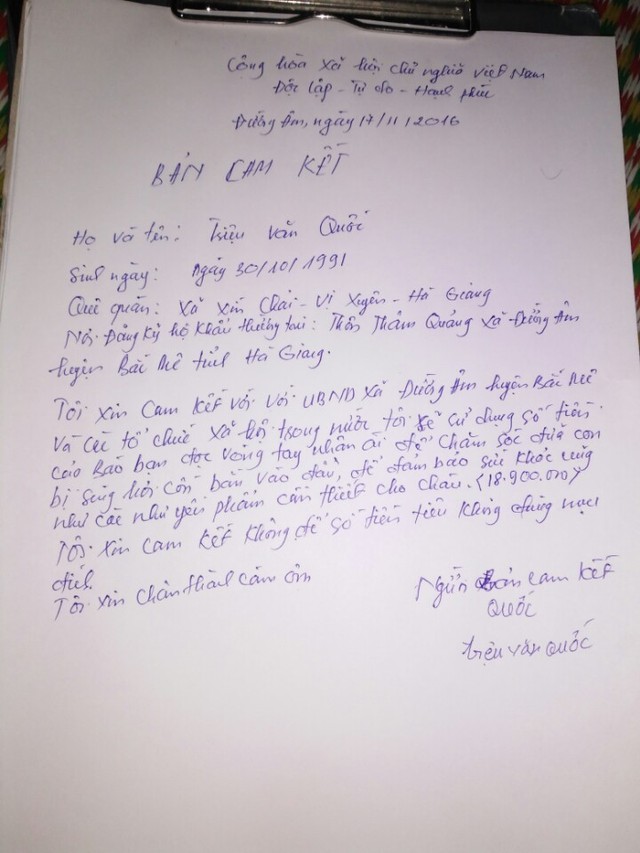 Cộng hòa xã hội chủ nghĩa việt Nam
Độc lập - Tự do - Hạnh phúc
Đường Âm, ngày 17/11/2016
BẢN CAM KẾT
Họ và tên: Triệu văn Quốc
Sinh ngày: Ngày 30/10/1991
Quê quán: Xã Xín Chải - Vị Xuyên - Hà Giang
Nơi Đăng ký hộ khẩu thường trú: Thôn Thâm Quảng xã - Đường Âm
huyện Bắc Mê tỉnh Hà Giang.
Tôi xin cam kết với với UBND xã Đường Âm huyện Bắc Mê
và các tổ chức xã hội trong nước tôi sẽ sử dụng số tiền
của Báo bạn đọc vòng tay nhân ái để chăm sóc đứa con
bị bỏng hơi cồn bắn vào đầu, để đảm bảo sức khỏe cũng
như các nhu yếu phẩm cần thiết cho cháu. (18.900.000)
Tôi xin cam kết không để số tiền tiêu không đúng mục
đích.
Tôi xin chân thành cảm ơn
Người bản cam kết
QUỐC
triệu văn QUỐC